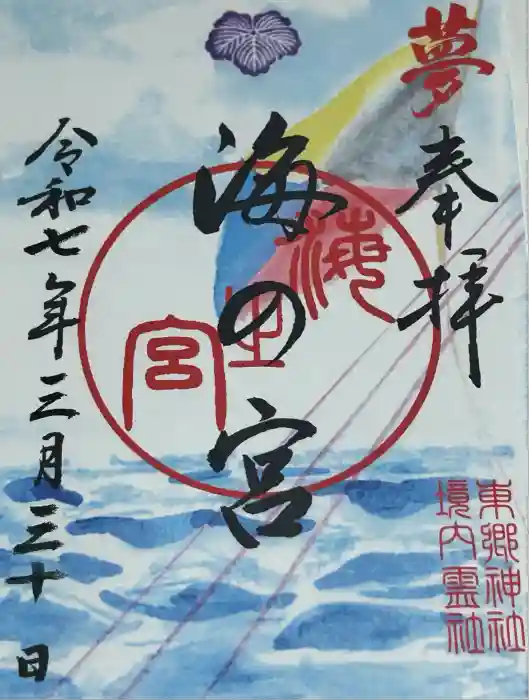 夢
奉拝
東郷神社
境内霊社
海の宮
海の宮
令和七年三月三十日